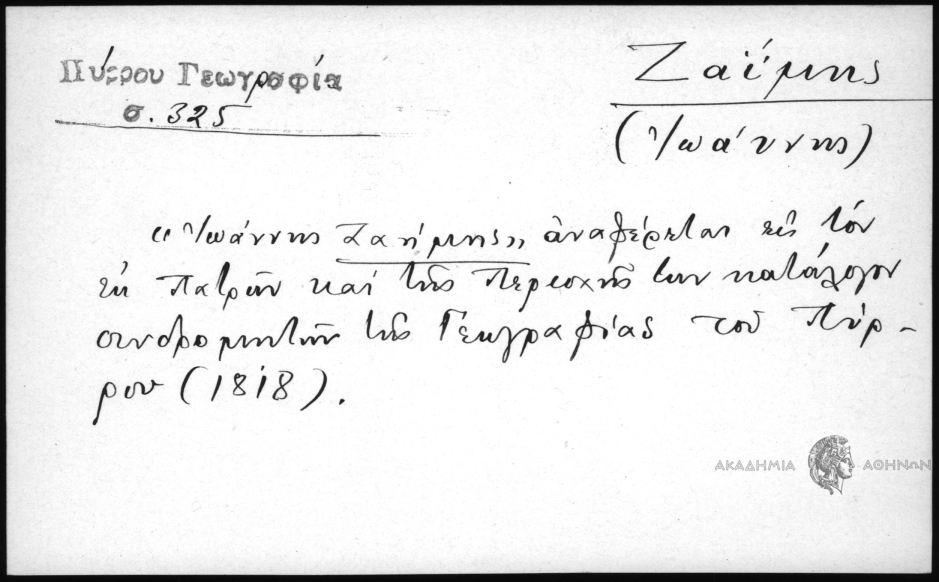 Πύρρου Γεωγραφία
σ. 325
Ζαΐμης
(Ἰωάννης)
«Ἰωάννης Ζαήμης» ἀναφέρεται εἰς τόν
ἐκ Πατρῶν καί τῆς περιοχῆς των κατάλογον
συνδρομητῶν τῆς Γεωγραφίας τοῦ Πύρ-
ρου (1818).
ΑΚΑΔΗΜΙΑ ΑΘΗΝΩΝ